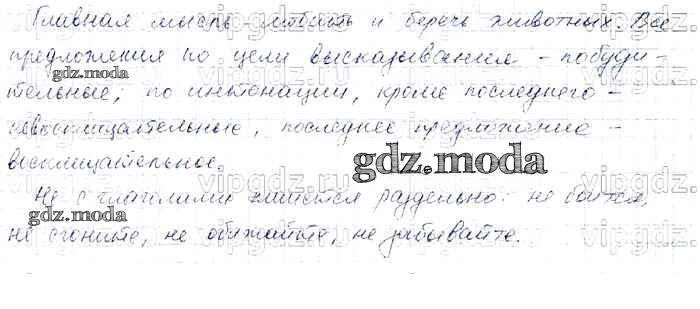 Главная мысль - любить и беречь животных. Все
предложения по цели высказывания - побуди-
тельные; по интонации, кроме последнего -
невосклицательные, последнее предложение -
восклицательное.
Не с глаголами пишется раздельно: не боится,
не сгоните, не обижайте, не забывайте.
gdz.moda
gdz.moda
gdz.moda
gdz.moda
vipgdz.ru